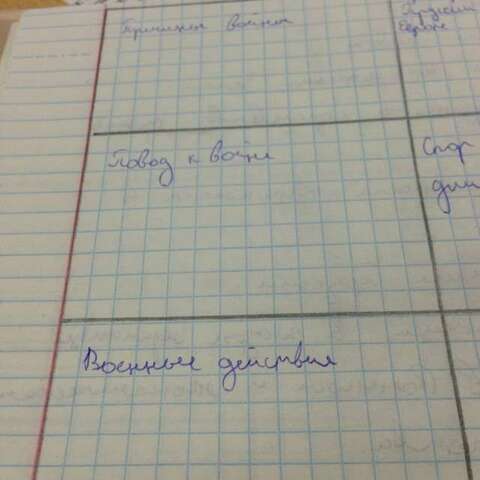 Причины войны
Европе
Повод к войне
Спор
дин
Военные действия